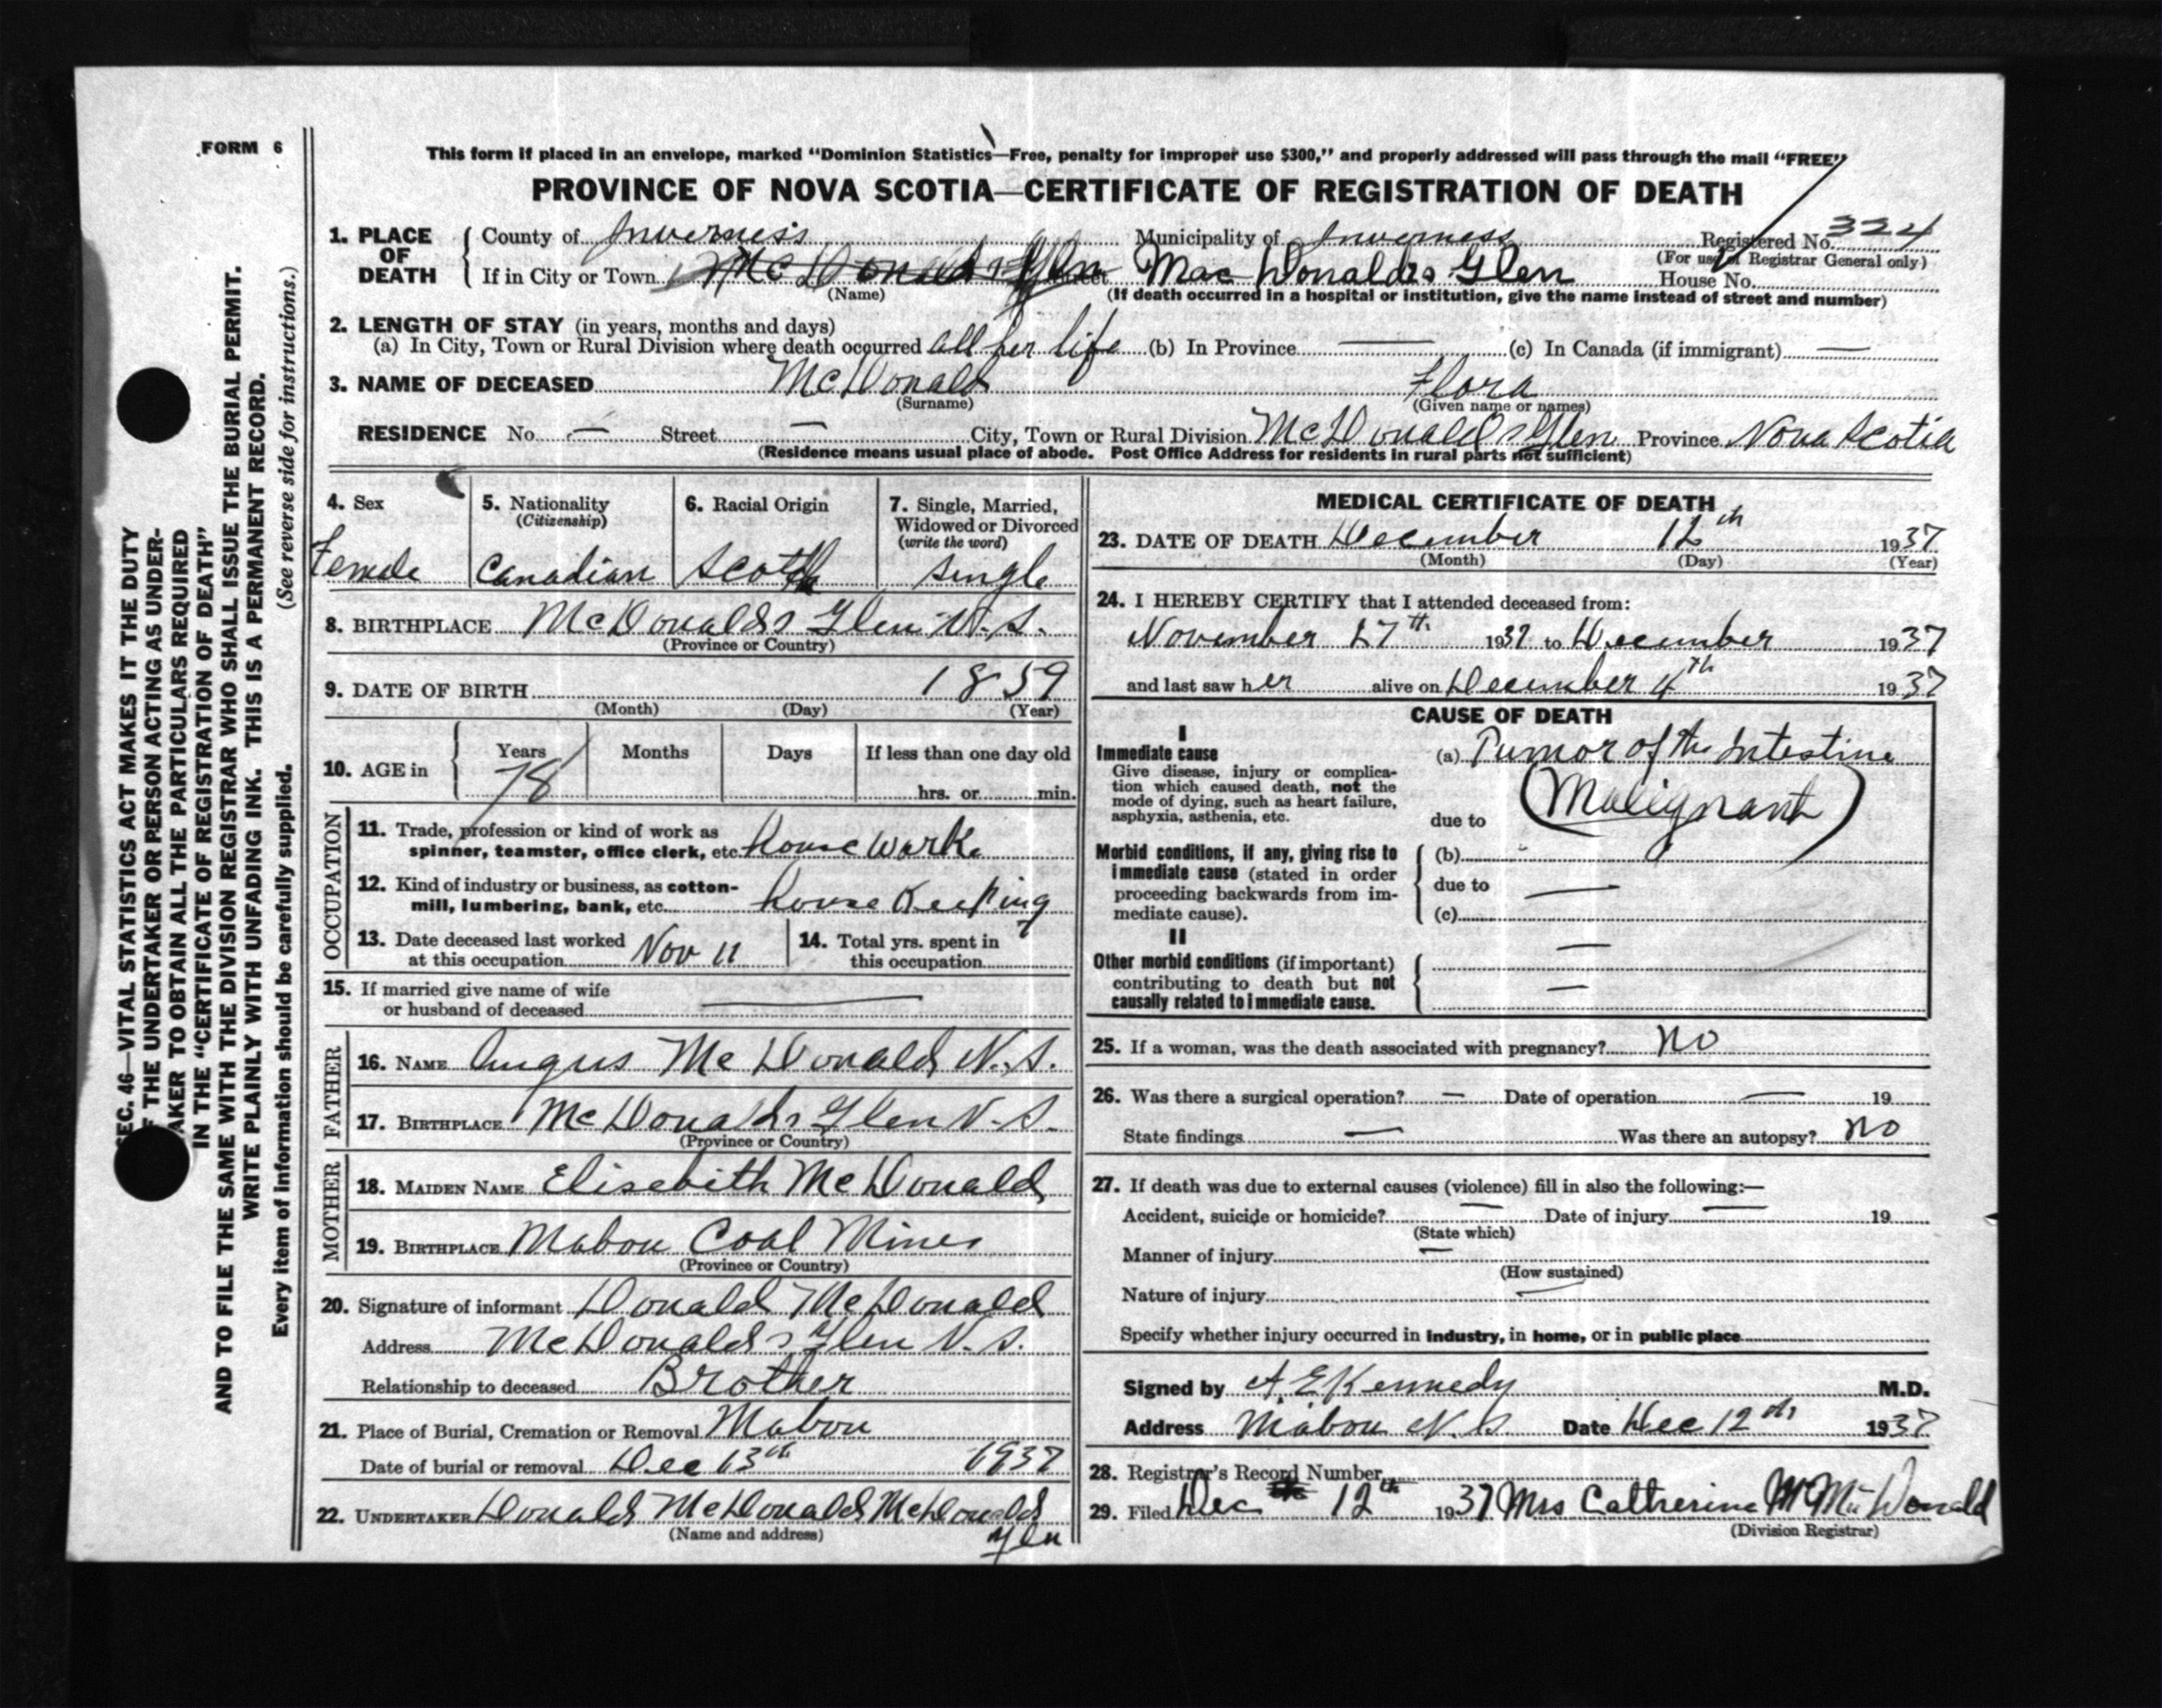 FORM 6
This form if placed in an envelope, marked "Dominion Statistics—Free, penalty for improper use $300," and properly addressed will pass through the mail "FREE"
PROVINCE OF NOVA SCOTIA—CERTIFICATE OF REGISTRATION OF DEATH
1. PLACE OF DEATH County of Inverness Municipality of Inverness Registered No. 324
(For use of Registrar General only)
If in City or Town McDonalds Glen Street MacDonalds Glen House No.
(Name) (If death occurred in a hospital or institution, give the name instead of street and number)
2. LENGTH OF STAY (in years, months and days)
(a) In City, Town or Rural Division where death occurred all her life (b) In Province — (c) In Canada (if immigrant) —
3. NAME OF DECEASED McDonald Flora
(Surname) (Given name or names)
RESIDENCE No. — Street — City, Town or Rural Division McDonalds Glen Province Nova Scotia
(Residence means usual place of abode. Post Office Address for residents in rural parts not sufficient)
4. Sex Female
5. Nationality (Citizenship) Canadian
6. Racial Origin Scotch
7. Single, Married, Widowed or Divorced (write the word) single
8. BIRTHPLACE McDonalds Glen N.S.
(Province or Country)
9. DATE OF BIRTH 1859
(Month) (Day) (Year)
10. AGE in Years 78 Months Days If less than one day old
hrs. or min.
OCCUPATION
11. Trade, profession or kind of work as spinner, teamster, office clerk, etc. house work
12. Kind of industry or business, as cotton-mill, lumbering, bank, etc. house Keeping
13. Date deceased last worked at this occupation Nov 11
14. Total yrs. spent in this occupation
15. If married give name of wife or husband of deceased —
FATHER
16. NAME Angus McDonald N.S.
17. BIRTHPLACE McDonalds Glen N.S.
(Province or Country)
MOTHER
18. MAIDEN NAME Elisebith McDonald
19. BIRTHPLACE Mabou Coal Mines
(Province or Country)
20. Signature of informant Donald McDonald
Address McDonalds Glen N.S.
Relationship to deceased Brother
21. Place of Burial, Cremation or Removal Mabou
Date of burial or removal Dec 13th 1937
22. UNDERTAKER Donald McDonald McDonalds Glen
(Name and address)
MEDICAL CERTIFICATE OF DEATH
23. DATE OF DEATH December 12th 1937
(Month) (Day) (Year)
24. I HEREBY CERTIFY that I attended deceased from:
November 27th 1937 to December 1937
and last saw her alive on December 4th 1937
CAUSE OF DEATH
I
Immediate cause (a) Tumor of the Intestine
Give disease, injury or complication which caused death, not the mode of dying, such as heart failure, asphyxia, asthenia, etc.
due to (Malignant)
Morbid conditions, if any, giving rise to immediate cause (stated in order proceeding backwards from immediate cause).
(b)
due to —
(c)
II
Other morbid conditions (if important) contributing to death but not causally related to immediate cause.
—
—
25. If a woman, was the death associated with pregnancy? no
26. Was there a surgical operation? — Date of operation — 19
State findings — Was there an autopsy? no
27. If death was due to external causes (violence) fill in also the following:—
Accident, suicide or homicide? — Date of injury — 19
(State which)
Manner of injury —
(How sustained)
Nature of injury —
Specify whether injury occurred in industry, in home, or in public place
Signed by A. E Kennedy M.D.
Address Mabou N.S. Date Dec 12th 1937
28. Registrar's Record Number
29. Filed Dec 12th 1937 Mrs Catherine M McDonald
(Division Registrar)
SEC. 46—VITAL STATISTICS ACT MAKES IT THE DUTY
OF THE UNDERTAKER OR PERSON ACTING AS UNDER-
TAKER TO OBTAIN ALL THE PARTICULARS REQUIRED
IN THE "CERTIFICATE OF REGISTRATION OF DEATH"
AND TO FILE THE SAME WITH THE DIVISION REGISTRAR WHO SHALL ISSUE THE BURIAL PERMIT.
WRITE PLAINLY WITH UNFADING INK. THIS IS A PERMANENT RECORD.
Every item of information should be carefully supplied. (See reverse side for instructions.)